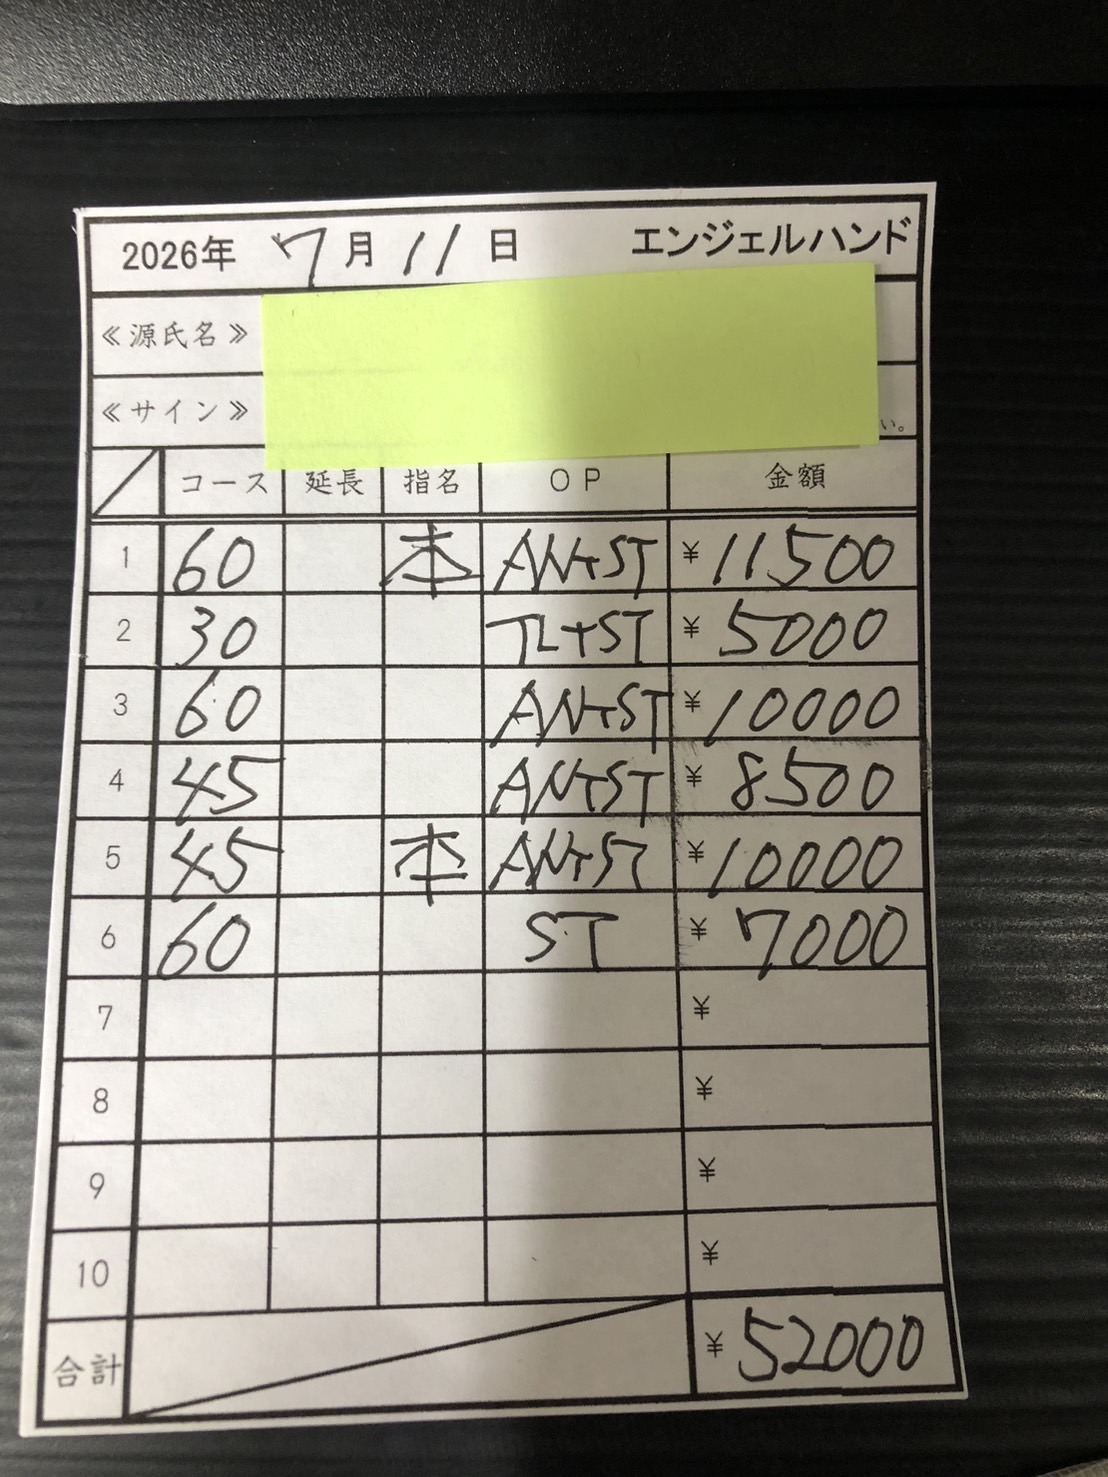 2026年 7月 11日 エンジェルハンド
≪源氏名≫
≪サイン≫ い。
コース 延長 指名 OP 金額
1 60 本 AN+ST ¥11500
2 30 TL+ST ¥5000
3 60 AN+ST ¥10000
4 45 AN+ST ¥8500
5 45 本 AN+ST ¥10000
6 60 ST ¥7000
7 ¥
8 ¥
9 ¥
10 ¥
合計 ¥52000